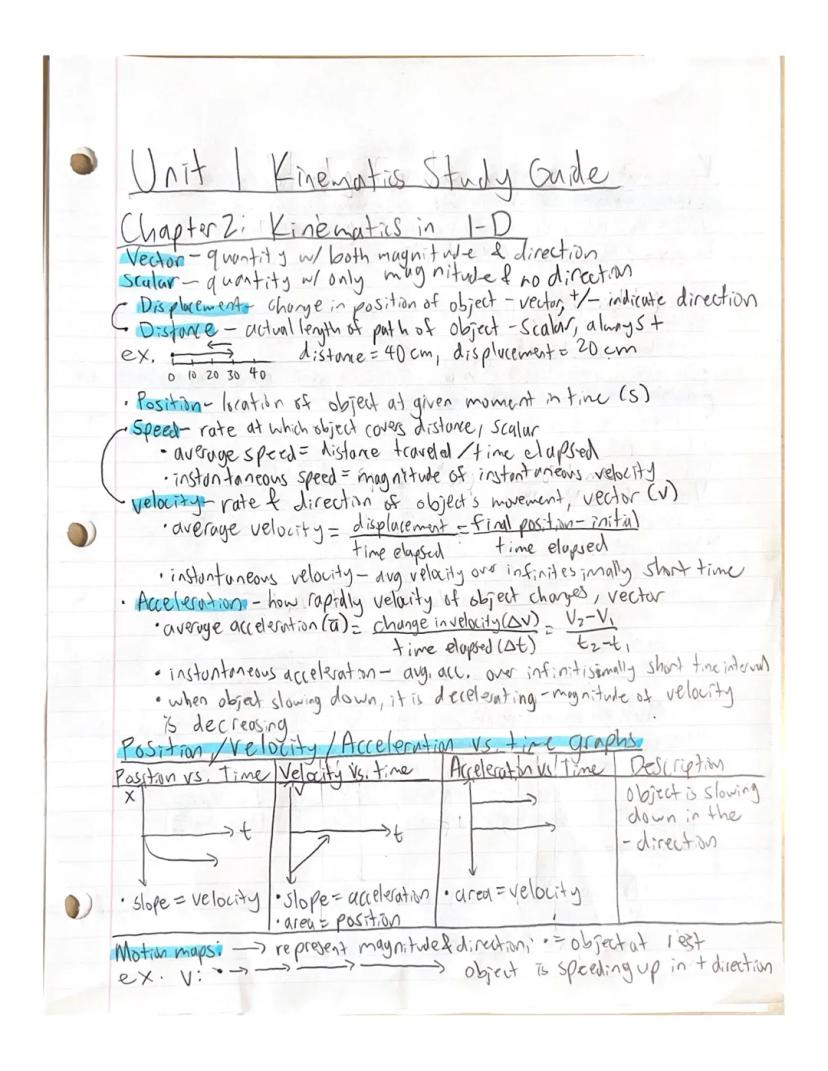 Unit 1 Kinematics Study Guide
Chapter 2: Kinematics in 1-D
Vector - quantity w/ both magnitude & direction
Scalar - quantity w/ only magnitude & no direction
Displacement - change in position of object - vector, +/- indicate direction
Distance - actual length of path of object - scalar, always +
ex. distance = 40 cm, displacement = 20 cm
0 10 20 30 40
• Position - location of object at given moment in time (s)
Speed - rate at which object covers distance, scalar
• average speed = distance traveled / time elapsed
• instantaneous speed = magnitude of instantaneous velocity
velocity - rate & direction of object's movement, vector (v)
• average velocity = displacement / time elapsed = final position - initial / time elapsed
• instantaneous velocity - avg velocity over infinitesimally short time
• Acceleration - how rapidly velocity of object changes, vector
• average acceleration (a̅) = change in velocity (Δv) / time elapsed (Δt) = V₂-V₁ / t₂-t₁
• instantoneous acceleration - avg. acc. over infinitisimally short time interval
• when object slowing down, it is decelerating - magnitude of velocity
is decreasing
Position/Velocity/Acceleration vs. time graphs
Position vs. Time | Velocity vs. time | Acceleration vs. Time | Description
x t
v t
object is slowing
down in the
- direction
• slope = velocity
• slope = acceleration
• area = position
• area = velocity
Motion maps: → represent magnitude & direction; • = object at rest
ex. v: •→ → → → object is speeding up in + direction